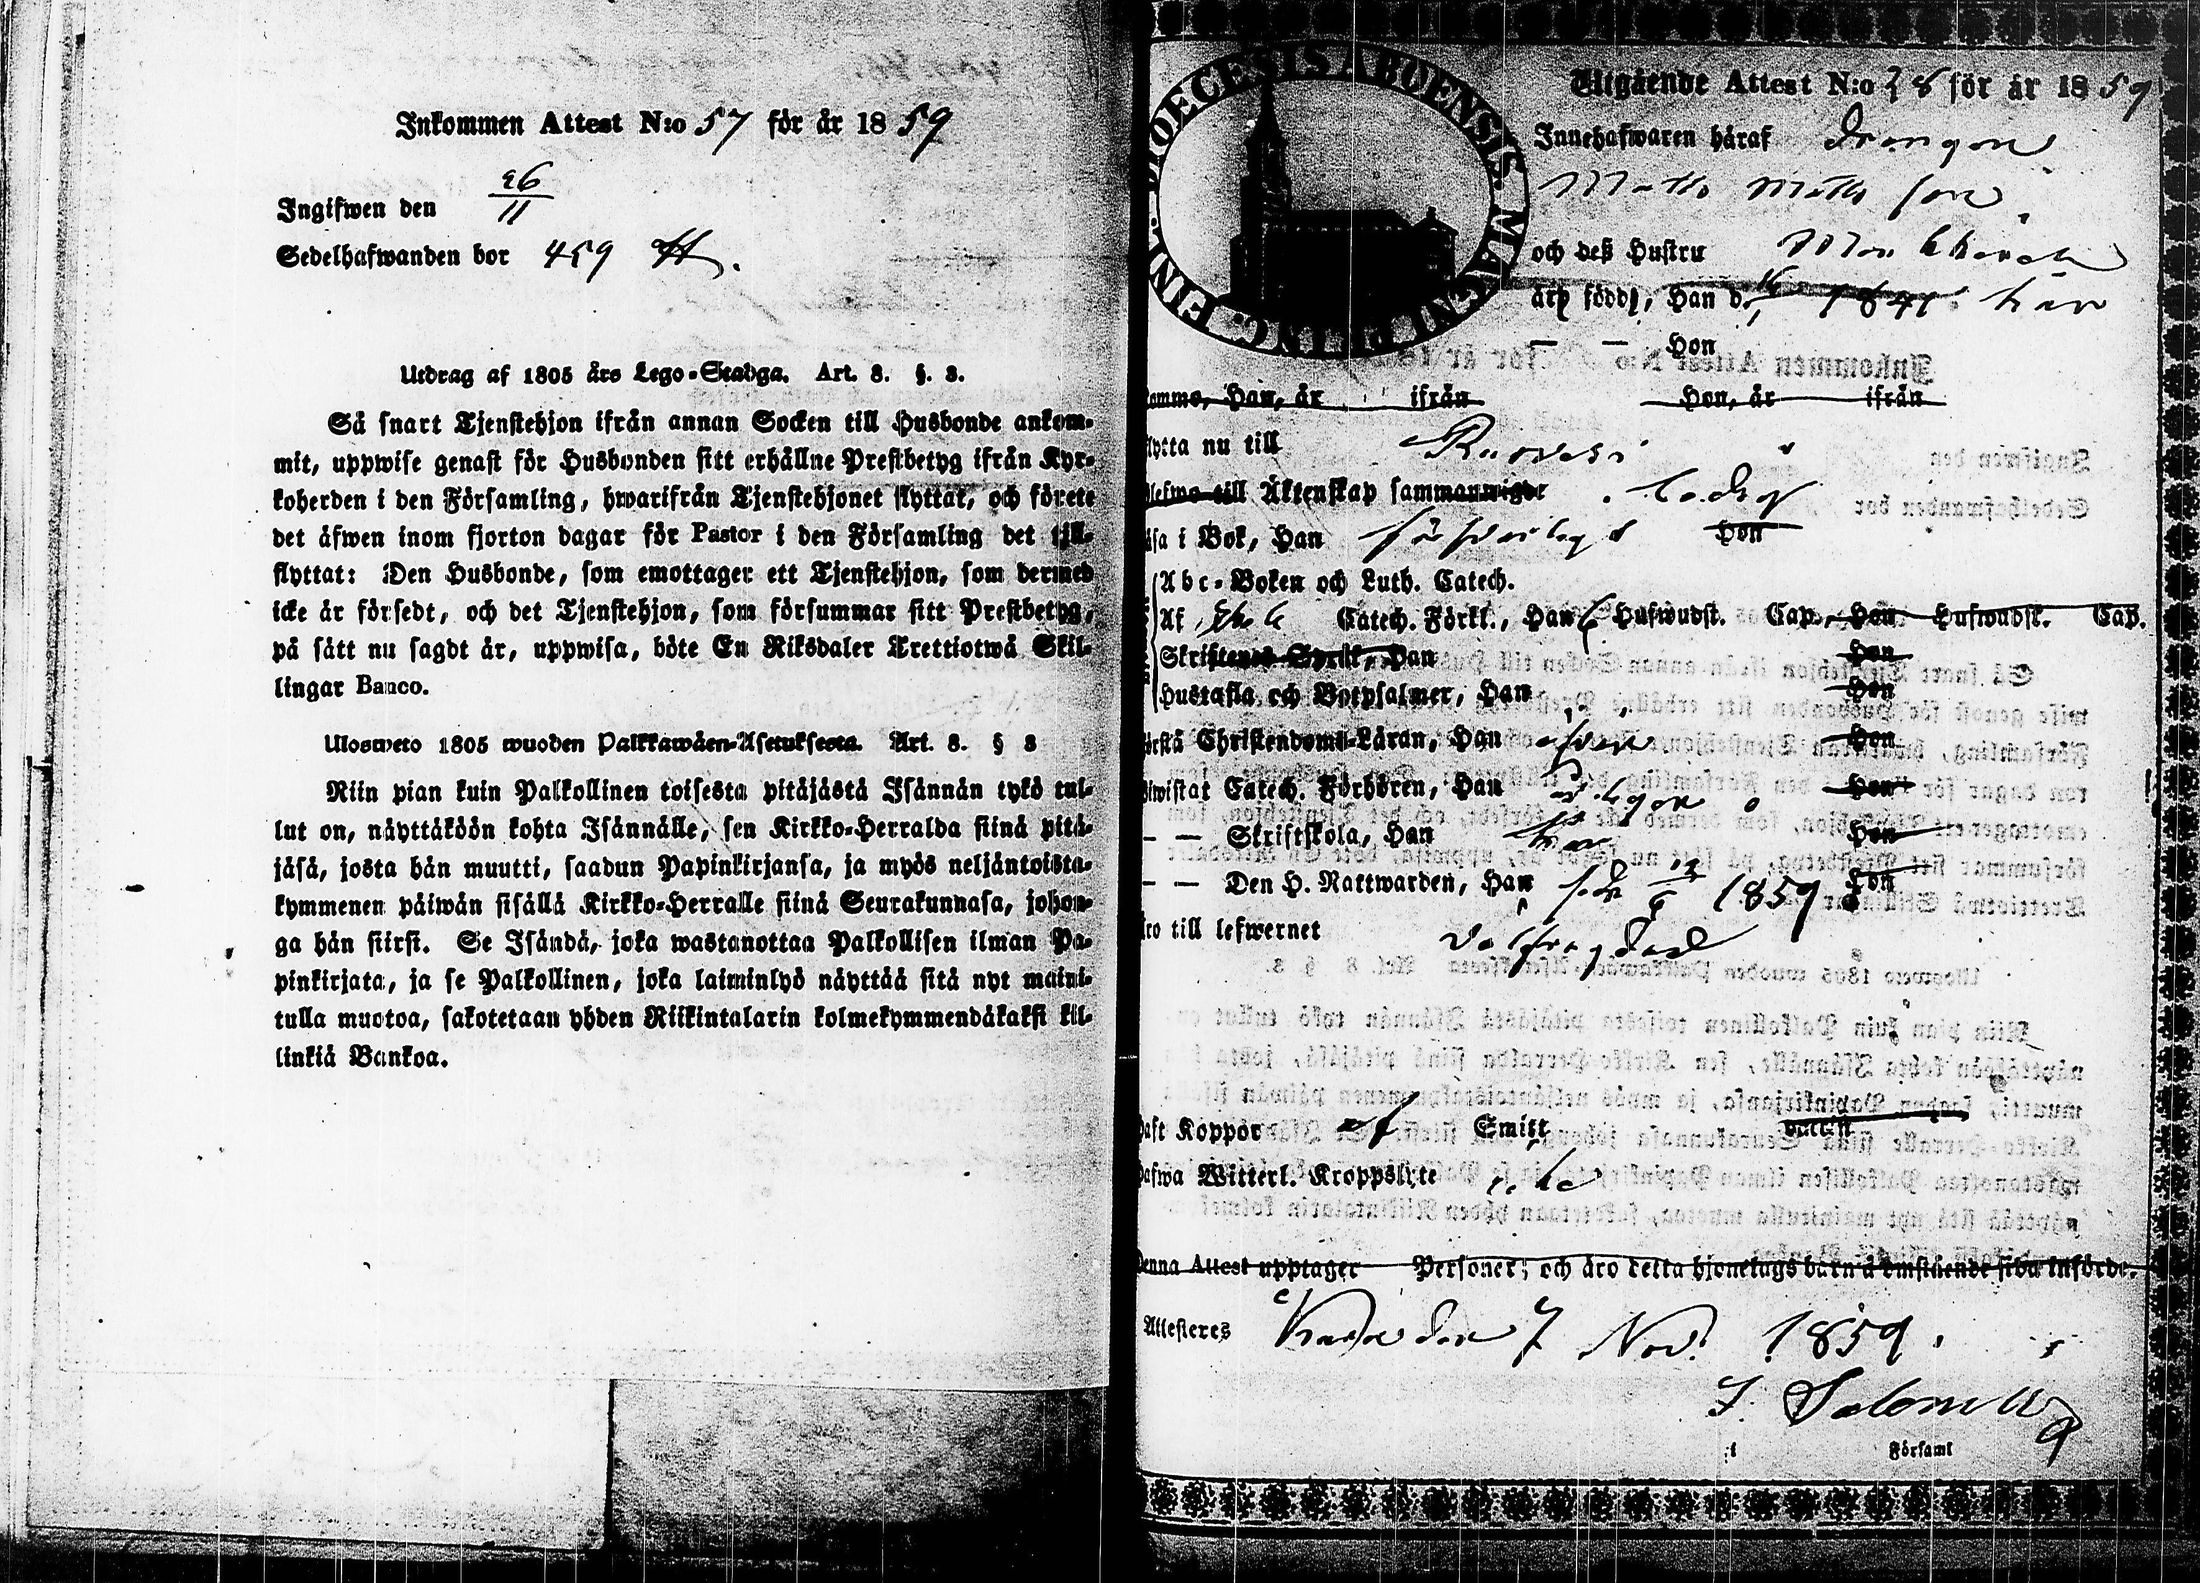 Inkommen Attest N:o 57 för år 1859
Ingifwen den 26/11
Sedelhafwanden bor 459
Utdrag af 1805 års Lego-Stadga. Art. 8. §. 3.
Så snart Tjenstehjon ifrån annan Socken till Husbonde ankom-
mit, uppwise genast för Husbonden sitt erhållne Prestbetyg ifrån Kyr-
koherden i den Församling, hwarifrån Tjenstehjonet flyttat, och förete
det äfwen inom fjorton dagar för Pastor i den Församling det till-
flyttat: Den Husbonde, som emottager ett Tjenstehjon, som dermed
icke är försedt, och det Tjenstehjon, som försummar sitt Prestbetyg,
på sätt nu sagdt är, uppwisa, böte En Riksdaler Trettiotwå Skil-
lingar Banco.
Ulosweto 1805 wuoden Palkkawäen-Asetuksesta. Art. 8. § 3
Niin pian kuin Palkollinen toisesta pitäjästä Isännän tykö tul-
lut on, näyttäköön kohta Isännälle, sen Kirkko-Herralda siinä pitä-
jäsä, josta hän muutti, saadun Papinkirjansa, ja myös neljäntoista-
kymmenen päiwän sisällä Kirkko-Herralle siinä Seurakunnasa, johon-
ga hän siirsi. Se Isändä, joka wastanottaa Palkollisen ilman Pa-
pinkirjata, ja se Palkollinen, joka laiminlyö näyttää sitä nyt maini-
tulla muotoa, sakotetaan yhden Riikintalarin kolmekymmendäkaksi kil-
linkiä Bankoa.
DIOECESIS ABOENSIS. MAGNI FINL.
Utgående Attest N:o 28 för år 1859
Innehafwaren häraf Drengen
Matts Matts son
och deß Hustru
äro födde, Han d. 1841 här
— — Hon
Han, år ifrån Hon, år ifrån
nu till Ruovesi
till Äktenskap sammanwigde ledig
i Bok, Han försvarligt Hon
Abc-Boken och Luth. Catech.
Af Catech. Förkl., Han 6 Hufwudst. Cap., Hon Hufwudst. Cap.
Skriftenes Språk, Han Hon
Hustafla och Botpsalmer, Han Hon
Christendoms-Läran, Han Hon
Catech. Förhören, Han Hon
— — Skriftskola, Han Hon
— — Den H. Nattwarden, Han 1859 Hon
till lefwernet
Koppor Smitt
Witterl. Kroppslyte
Denna Attest upptager Personer; och äro detta hjonelags barn å omstående sida införde.
Attesteres den 7 Nov. 1859.
Församl